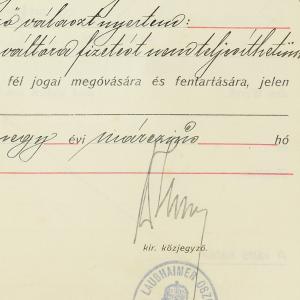 ő választ nyertem:
váltóra fizetést nem teljesíthetünk
fél jogai megóvására és fentartására, jelen
negy évi márczius hó
kir. közjegyző.
LAUBHAIMER OSZ